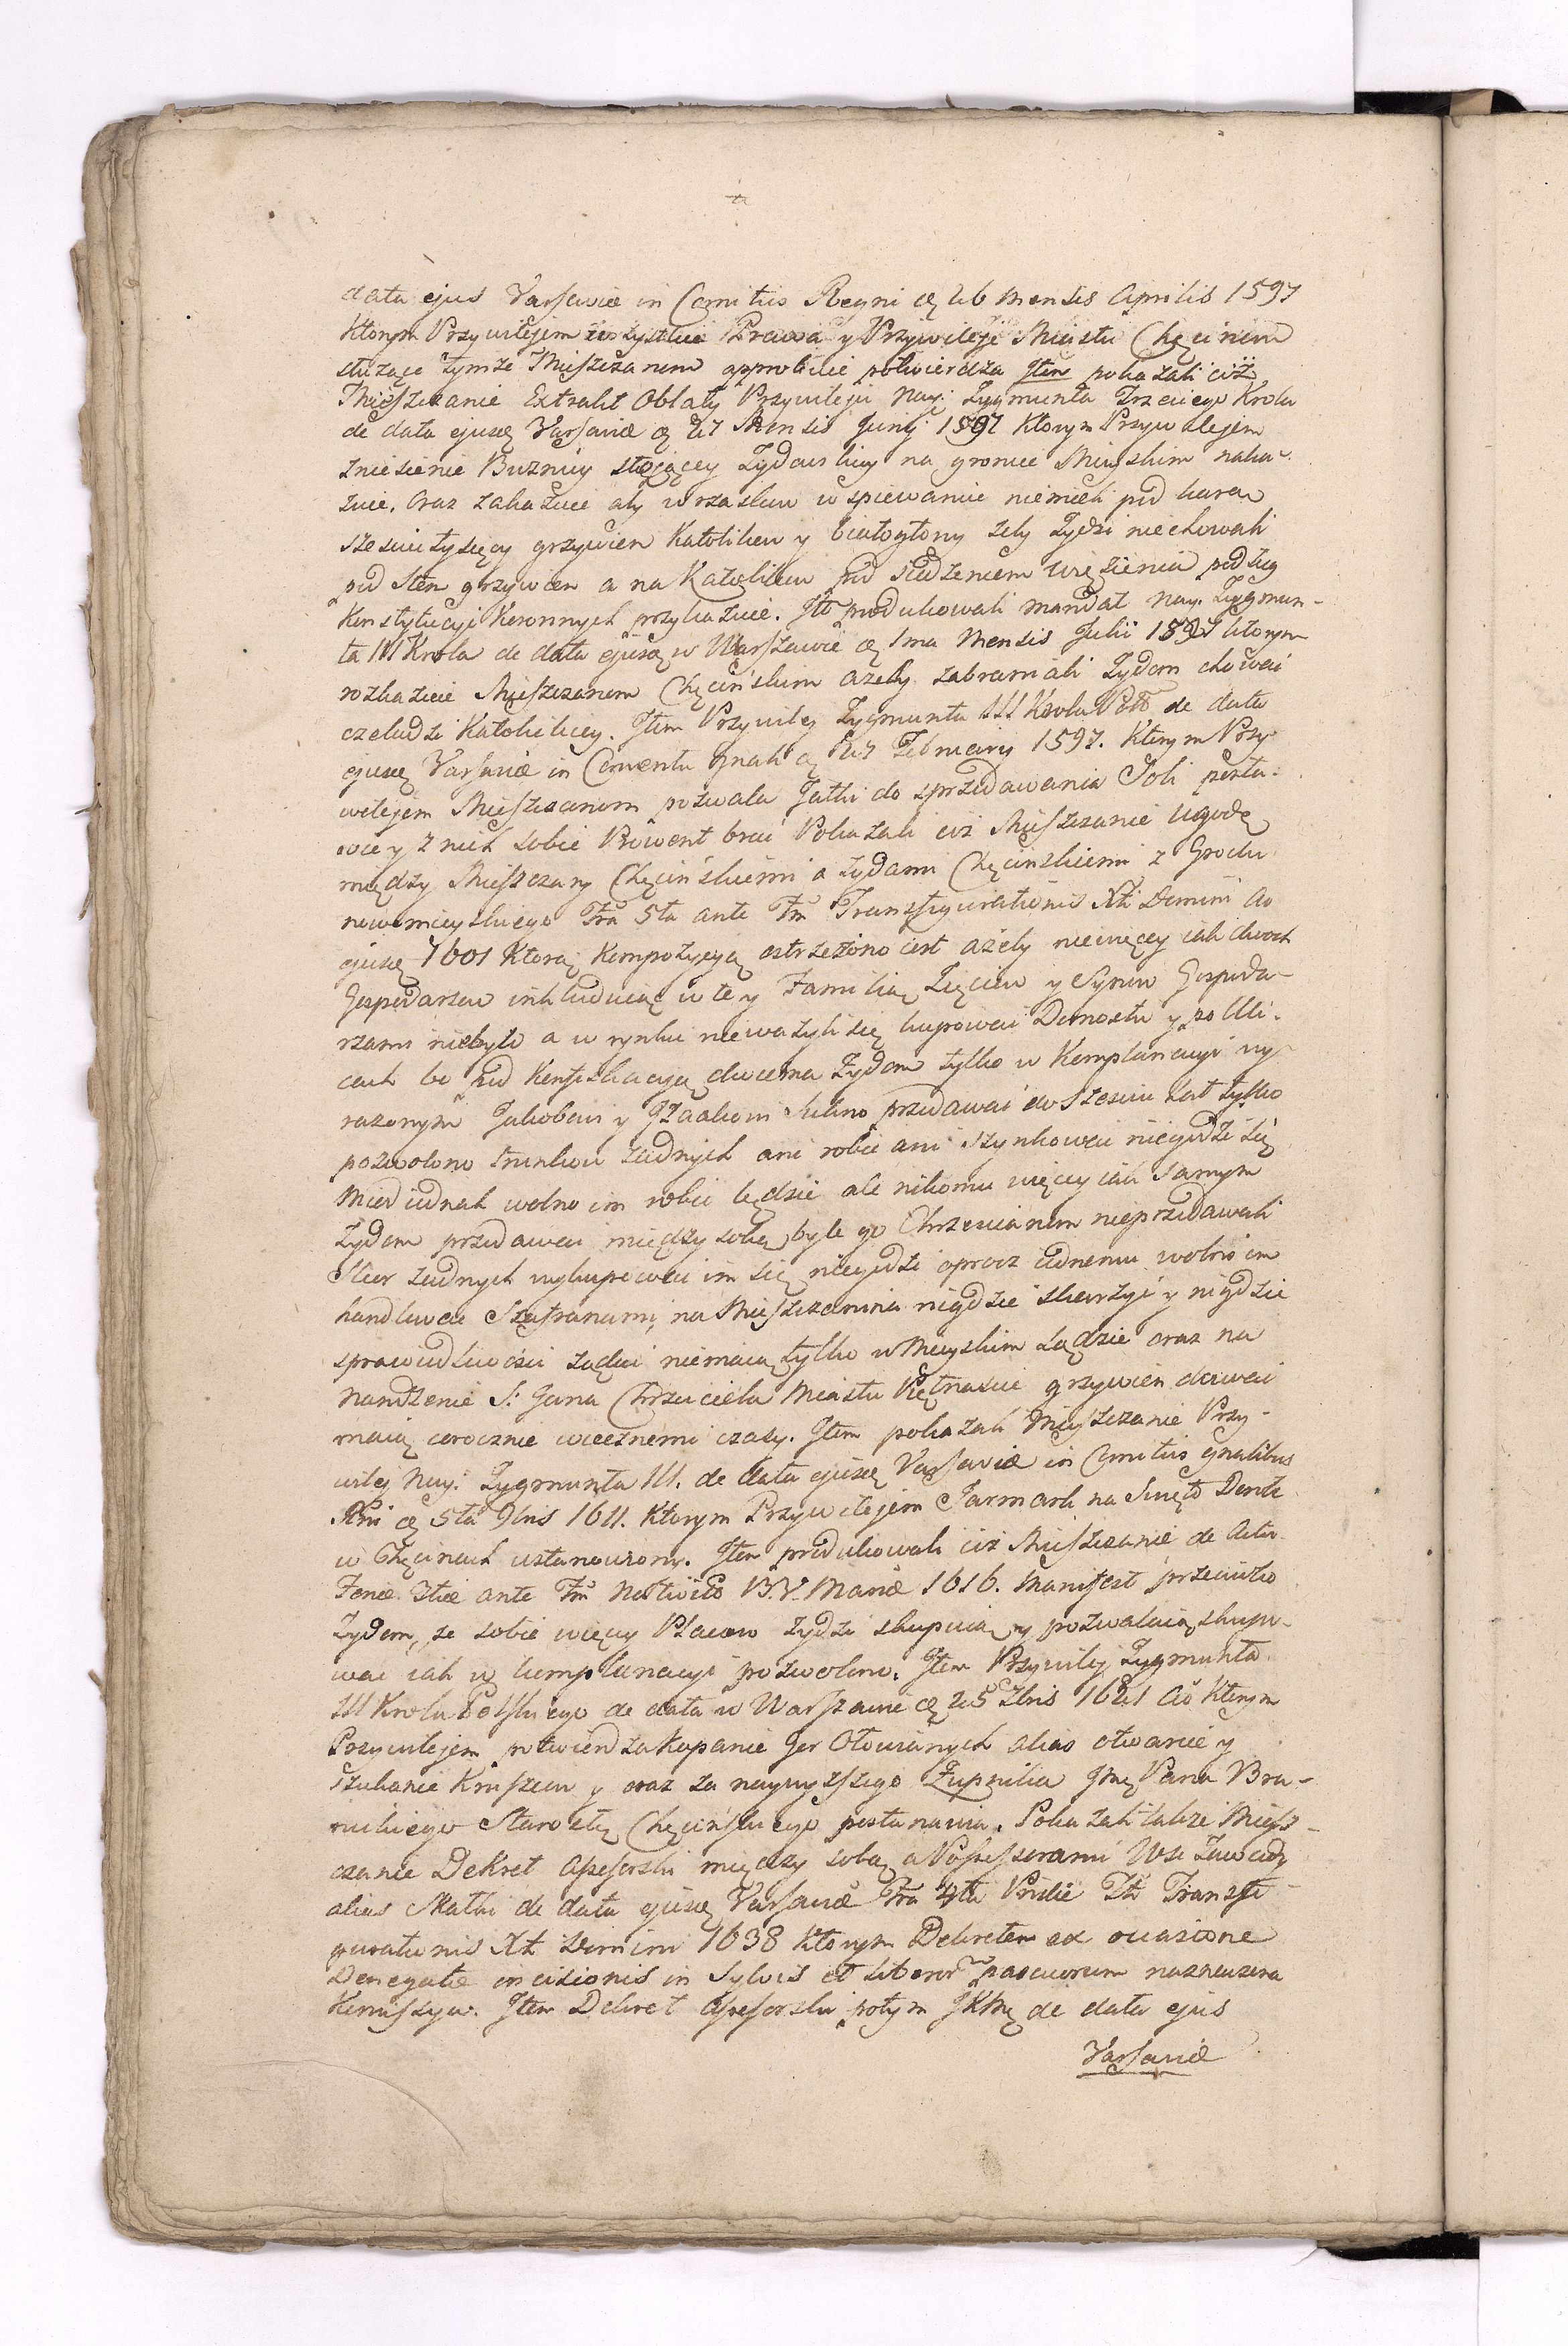 data ejus Varsaviæ in Comitiis Regni 26 Mensis Aprilis 1597
Ktorym Przywilejem wszystkie Prawa y Przywileje Miastu Chęcinom
służące tymże Mieszczanom approbuie potwierdza Item pokazali ciż
Mieszczanie Extrakt Oblaty Przywileju Nay: Zygmunta Trzeciego Krola
de data ejusq Varsaviæ 27 Mensis Junij 1597 Ktorym Przywilejem
zniesienie Buznicy stojącey Zydowskiey na gronce Mieyskim naka-
zuie, oraz zakazuie aby wrzasków w spiewaniu niemieli pod karą
sześciu tysięcy grzywien Katolikow y białogłowy żeby Zydzi niechowali
pod Sten grzywien a na Katolikow pod siedzeniem więzienia podług
Konstytucyi Koronnych przykazuie. Itm produkowali mandat Nay. Zygmun-
ta III Krola de data ejusq w Warszawie 1ma Mensis Julii 1597 ktorym
rozkazuie Mieszczanom Chęcińskim azeby zabraniali Zydom chować
czeladzi Katolickiey. Item Przywiley Zygmunta III Krola Pol de data
ejusq Varsaviæ in Conventu gnali 27 Februarij 1597. Ktorym Przy-
wilejem Mieszczanom pozwala Jatki do sprzedawania Soli posta-
wic y z nich sobie Prowent brać Pokazali ciż Mieszczanie Ugodę
między Mieszczany Chęcińskiemi a żydami Chęcinskiemi z Grodu
nowomieyskiego Fra 5ta ante Fm Transfigurationis Xti Domini Ao
ejusq 1601 Ktorą Kompozycyą ostrzeżono iest ażeby niewięcey iak dwoch
Gospodarzow inkluduiąc w tey Familią Zięciow y Synow Gospoda-
rzami niebyło a w rynku nieważyli się kupować Domostw y po Uli-
cach to pod Konfiskacyą dwiema Zydom tylko w Komplanacyi wy-
rażonym Jakobowi y Izaakowi Sukno przedawać do sześciu Lat tylko
pozwolono trunkow żadnych ani robic ani szynkować niegodzi się
Miod iednak wolno im robić będzie ale nikomu więcey iak samym
Zydom przedawać między sobą byle go Chrzescianom nieprzedawali
Skor żadnych wykupować im się niegodzi oprocz iednemu wolno im
handlować Szafranami, na Mieszczanina nigdzie skarżyć y nigdzie
sprawiedliwości żądać niemaią tylko w Mieyskim Sądzie oraz na
Narodzenie S: Jana Chrzciciela Miastu Piętnaście grzywien dawać
maią corocznie wiecznemi czasy. Item pokazali Mieszczanie Przy-
wiley Nay: Zygmunta III. de data ejusq Varsaviæ in Comitiis gnalibus
Rni 5ta 9bris 1611. Ktorym Przywilejem Jarmark na Swięto Dorot
w Chęcinach ustanowiony. Item produkowali ciż Mieszczanie de Actu
Feriæ 3tiæ ante Fm Nativitis B.V. Mariæ 1616. Manifest przeciwko
Zydom, ze sobie więcey Placow żydzi skupuią y pozwalaią skupo-
wać iak w komplanacyi pozwolono. Item Przywiley Zygmunta
III Krola Polskiego de data w Warszawie 25 7bris 1621 Ao Ktorym
Przywilejem potwierdza Kopanie Gor Ołowianych alias otwarcie y
szukanie Kruszcow y oraz za naywyższego Zupnika Jmę Pana Bra-
nickiego Starostę Chęcińskiego postanawia. Pokazali także Miesz-
czanie Dekret Assessorski między sobą a Possessorami Wsi Zawady
alias Matki de data ejusq Varsaviæ Fra 4ta Pridie Fti Transfi-
gurationis Xti Domini 1638 Ktorym Dekretem ex occasione
Denegatæ incisionis in Sylvis et liberor pascuorum naznaczona
Komissya. Item Dekret Assessorski potym JKMę de data ejus
Varsaviæ